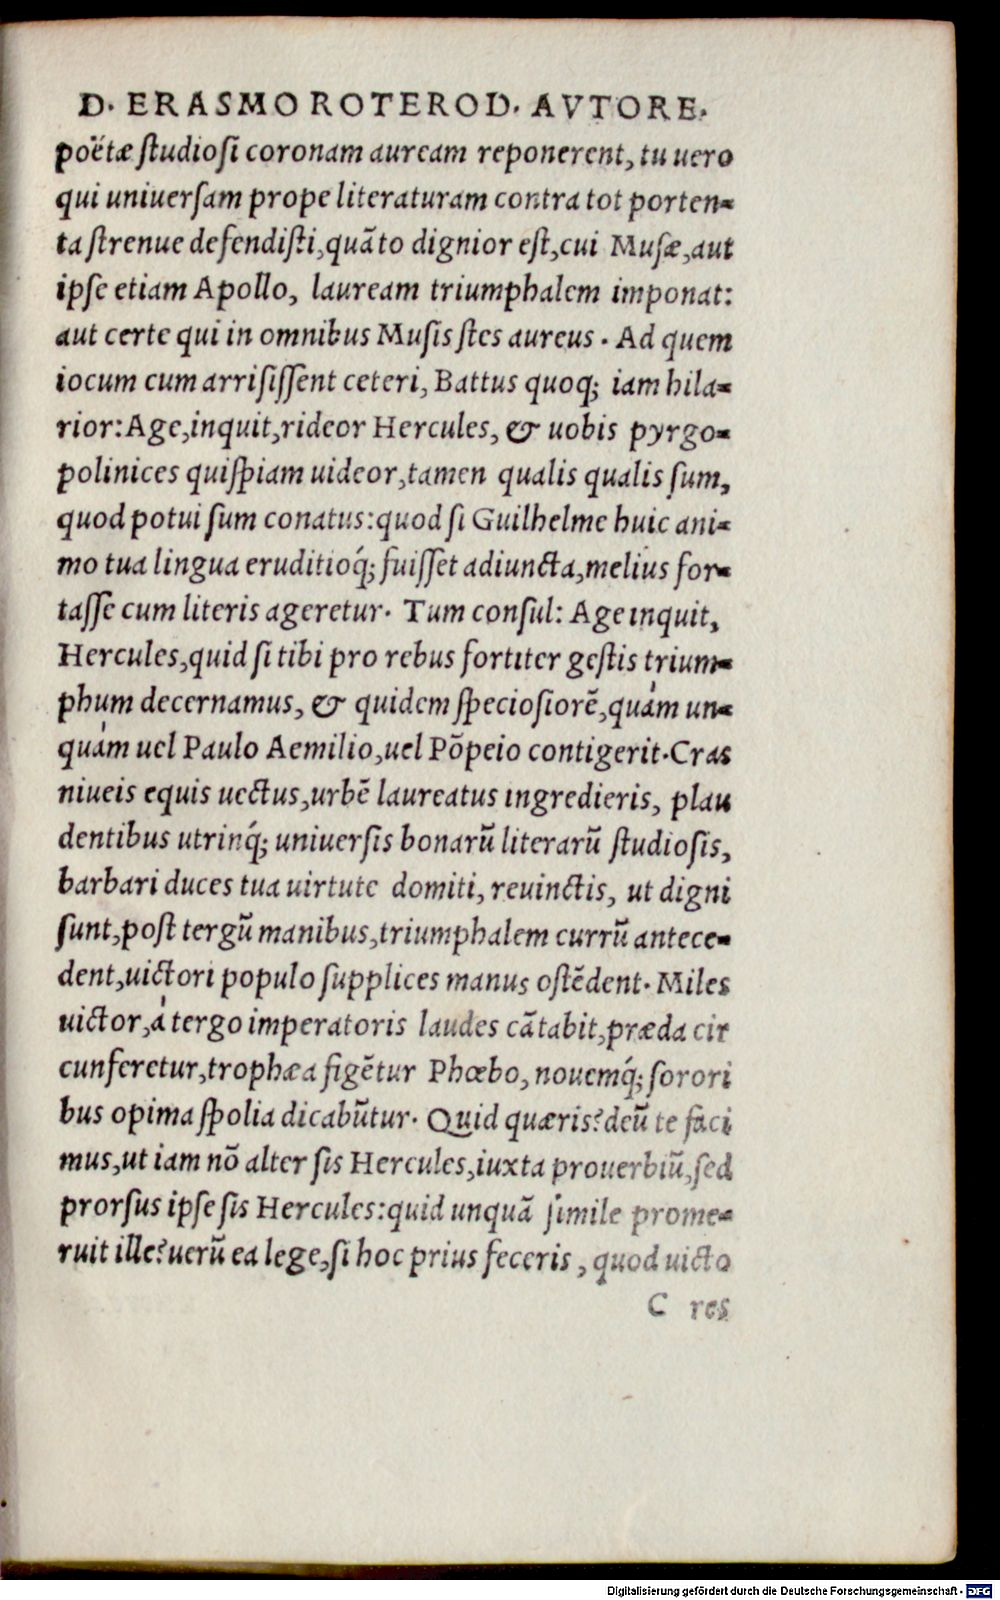 D. ERASMO ROTEROD. AVTORE.
poëtæ ſtudioſi coronam auream reponerent, tu uero
qui uniuerſam prope literaturam contra tot porten-
ta ſtrenue defendiſti, quãto dignior eſt, cui Muſæ, aut
ipſe etiam Apollo, lauream triumphalem imponat:
aut certe qui in omnibus Muſis ſtes aureus. Ad quem
iocum cum arriſiſſent ceteri, Battus quoq; iam hila-
rior: Age, inquit, rideor Hercules, & uobis pyrgo-
polinices quiſpiam uideor, tamen qualis qualis ſum,
quod potui ſum conatus: quod ſi Guilhelme huic ani-
mo tua lingua eruditioq́; fuiſſet adiuncta, melius for-
taſſe cum literis ageretur. Tum conſul: Age inquit,
Hercules, quid ſi tibi pro rebus fortiter geſtis trium-
phum decernamus, & quidem ſpecioſiorẽ, quàm un-
quàm uel Paulo Aemilio, uel Põpeio contigerit. Cras
niueis equis uectus, urbẽ laureatus ingredieris, plau
dentibus utrinq́; uniuerſis bonarũ literarũ ſtudioſis,
barbari duces tua uirtute domiti, reuinctis, ut digni
ſunt, poſt tergũ manibus, triumphalem currũ antece-
dent, uictori populo ſupplices manus oſtẽdent. Miles
uictor, à tergo imperatoris laudes cãtabit, præda cir
cunferetur, trophæa figẽtur Phœbo, nouemq́; ſorori
bus opima ſpolia dicabũtur. Quid quæris? deũ te faci
mus, ut iam nõ alter ſis Hercules, iuxta prouerbiũ, ſed
prorſus ipſe ſis Hercules: quid unquã ſimile prome-
ruit ille? uerũ ea lege, ſi hoc prius feceris, quod uicto
C res
Digitalisierung gefördert durch die Deutsche Forschungsgemeinschaft - DFG